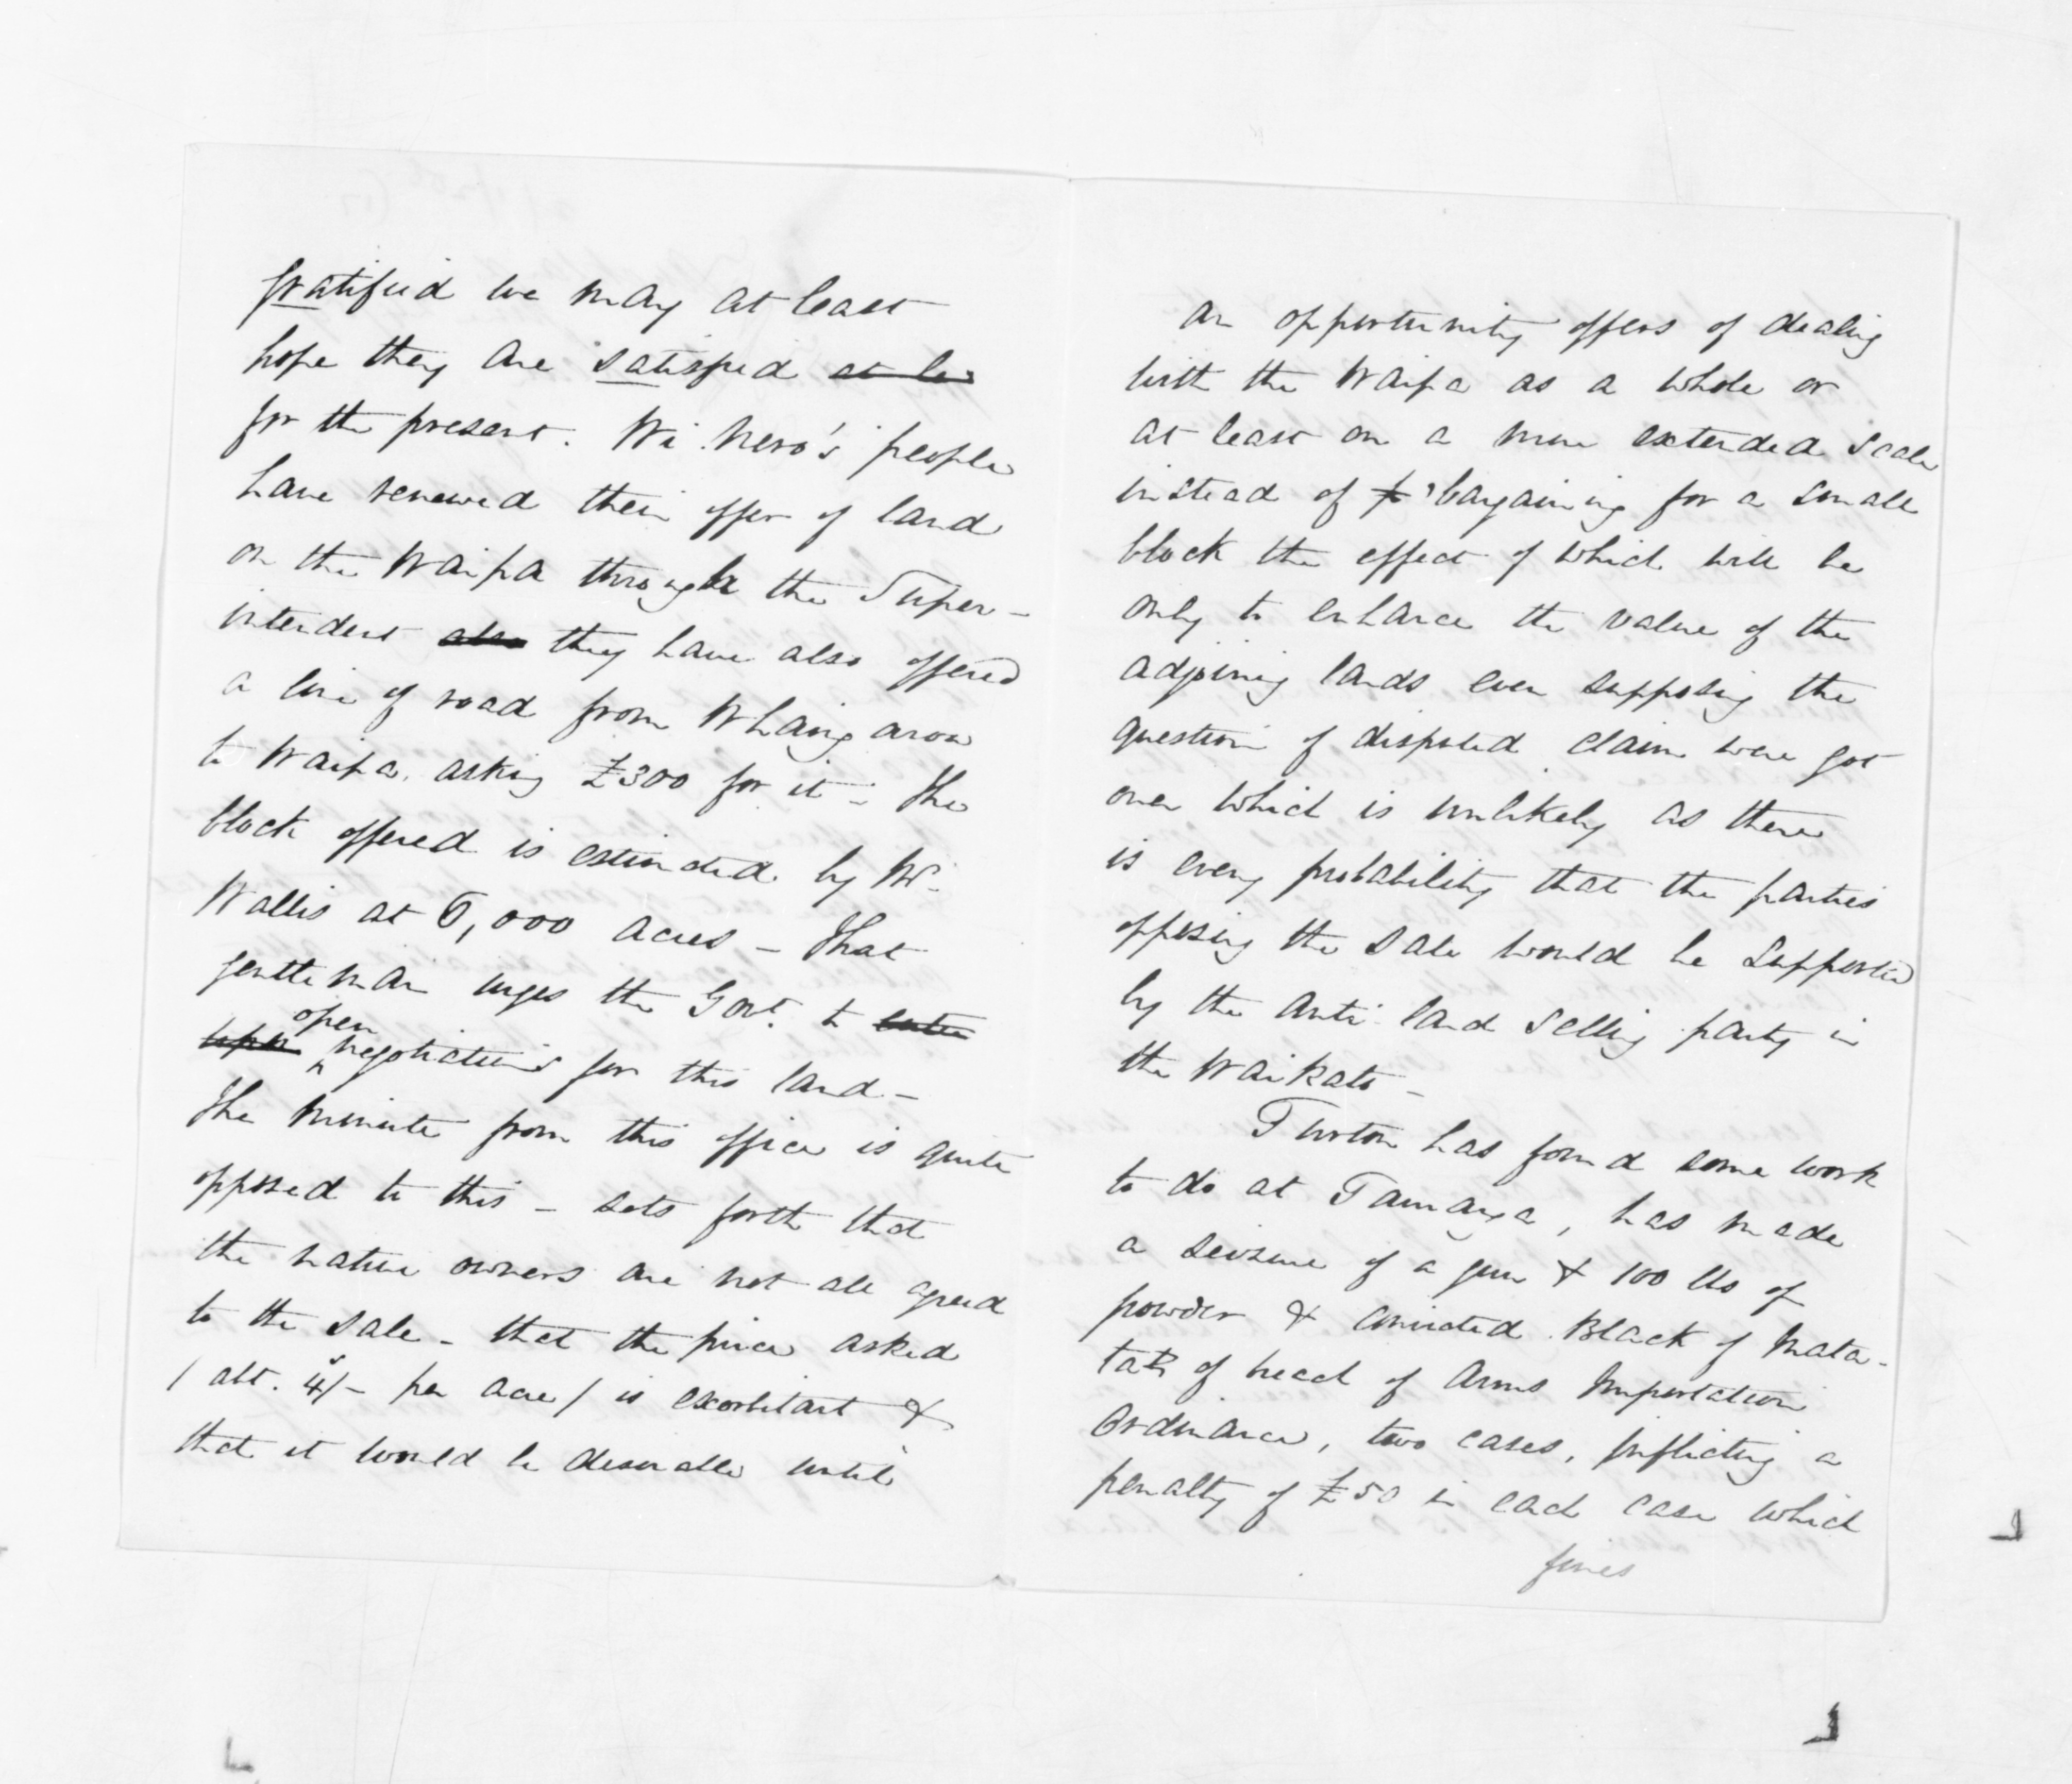 gratified we may at least
hope they are satisfied at les
for the present. Wi Nero's people
have renewed their offer of land
on the Waipa through the Super-
intendent also they have also offered
a line of road from Whaingaroa
to Waipa. asking £300 for it - The
block offered is estimated by Mr.
Wallis at 6,000 acres - That
gentleman urges the Govt. to enter
upon open negotiations for this land -
The minute from this office is quite
opposed to this - sets forth that
the native owners are not all agreed
to the sale - that the price asked
/ abt. 4/- per acre / is exorbitant &
that it would be desirable until
an opportunity offers of dealing
with the Waipa as a whole or
at least on a more extended scale
instead of bargaining for a small
block the effect of which will be
only to enhance the value of the
adjoining lands even supposing the
question of disputed claim were got
over which is unlikely as there
is every probability that the parties
opposing the sale would be supported
by the anti-land selling party in
the Waikato -
Turton has found some work
to do at Tauranga, has made
a seizure of a gun & 100 lbs of
powder & convicted Black of Mata-
ta of breach of Arms Importation
Ordinance, two cases, inflicting a
penalty of £50 in each case which
fines